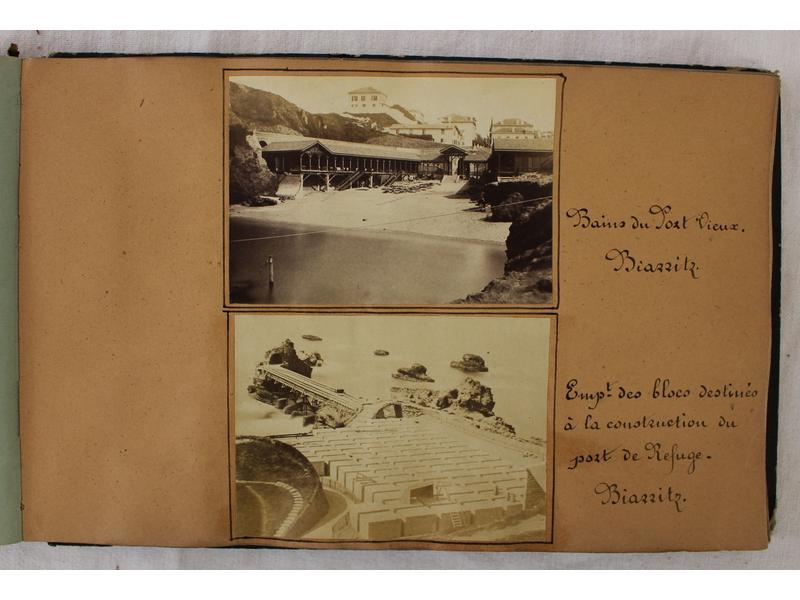 Bains du Port Vieux.
Biarritz.
Empt. des blocs destinés
à la construction du
port de Refuge.
Biarritz.